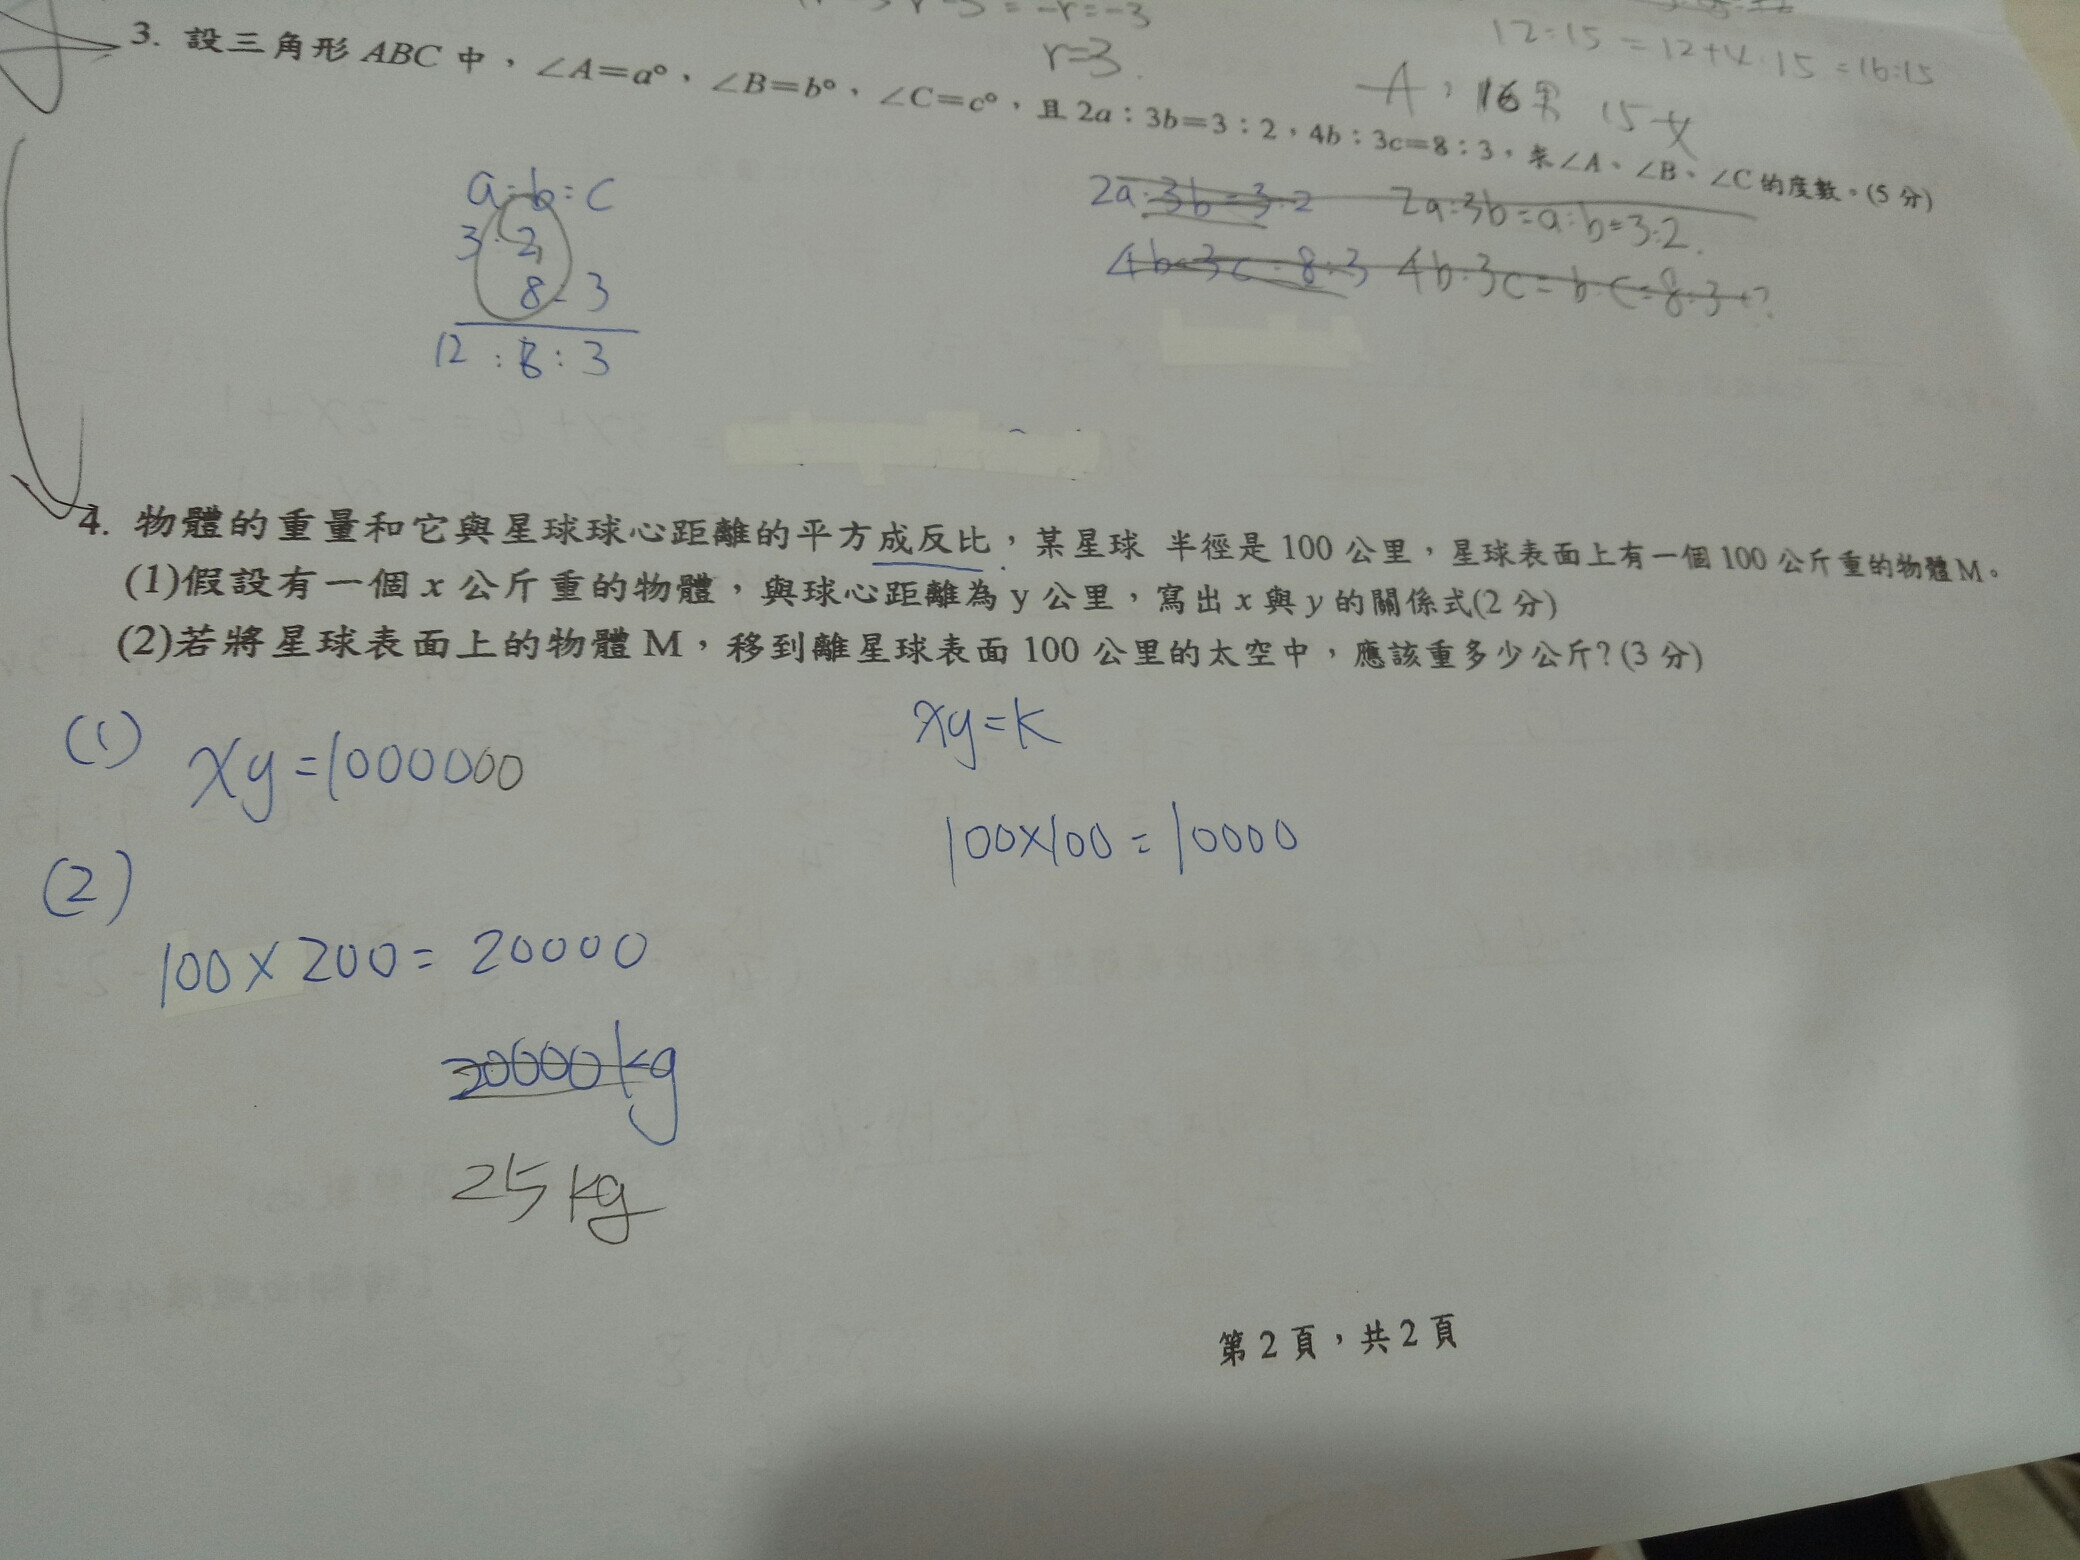 r=3
12:15=12+4:15=16:15
A, 16男 15女
3. 設三角形 ABC 中，∠A=a°，∠B=b°，∠C=c°，且 2a：3b=3：2，4b：3c=8：3，求∠A、∠B、∠C 的度數。(5 分)
a:b:c
3:2
8:3
12:8:3
2a:3b=3:2 2a:3b=a:b=3:2.
4b:3c=8:3 4b:3c=b:c=8:3
4. 物體的重量和它與星球球心距離的平方成反比，某星球 半徑是 100 公里，星球表面上有一個 100 公斤重的物體 M。
(1)假設有一個 x 公斤重的物體，與球心距離為 y 公里，寫出 x 與 y 的關係式(2 分)
(2)若將星球表面上的物體 M，移到離星球表面 100 公里的太空中，應該重多少公斤？(3 分)
(1) xy=1000000
xy=k
100×100=10000
(2)
100×200=20000
20000kg
25kg
第 2 頁，共 2 頁